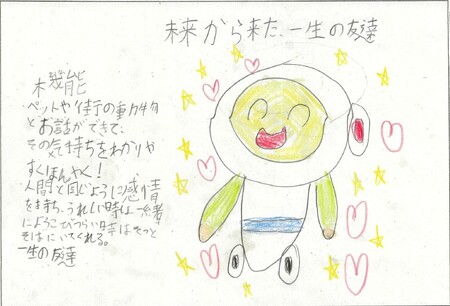 未来から来た、一生の友達
機能
ペットや街の動物
とお話ができて、
その気持ちをわかりや
すくほんやく!
人間と同じように感情
を持ち、うれしい時は一緒
によろこびつらい時はそっと
そばにいてくれる。
一生の友達